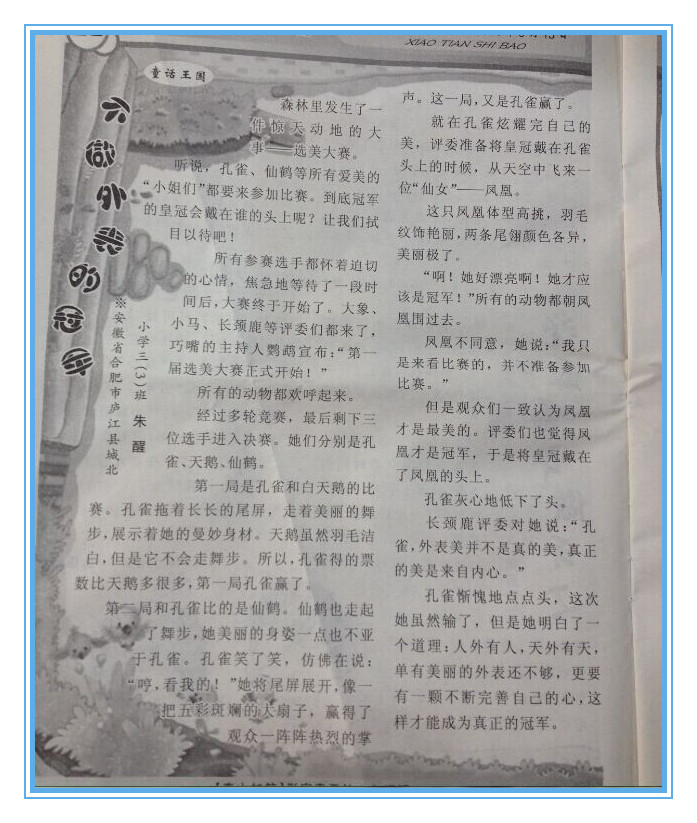 XIAO TIAN SHI BAO
童话王国
不做外表的冠军
※安徽省合肥市庐江县城北
小学三(3)班 朱 醒
森林里发生了一
件惊天动地的大
事——选美大赛。
听说，孔雀、仙鹤等所有爱美的
“小姐们”都要来参加比赛。到底冠军
的皇冠会戴在谁的头上呢？让我们拭
目以待吧！
所有参赛选手都怀着迫切
的心情，焦急地等待了一段时
间后，大赛终于开始了。大象、
小马、长颈鹿等评委们都来了，
巧嘴的主持人鹦鹉宣布：“第一
届选美大赛正式开始！”
所有的动物都欢呼起来。
经过多轮竞赛，最后剩下三
位选手进入决赛。她们分别是孔
雀、天鹅、仙鹤。
第一局是孔雀和白天鹅的比
赛。孔雀拖着长长的尾屏，走着美丽的舞
步，展示着她的曼妙身材。天鹅虽然羽毛洁
白，但是它不会走舞步。所以，孔雀得的票
数比天鹅多很多，第一局孔雀赢了。
第二局和孔雀比的是仙鹤。仙鹤也走起
了舞步，她美丽的身姿一点也不亚
于孔雀。孔雀笑了笑，仿佛在说：
“哼，看我的！”她将尾屏展开，像一
把五彩斑斓的大扇子，赢得了
观众一阵阵热烈的掌
声。这一局，又是孔雀赢了。
就在孔雀炫耀完自己的
美，评委准备将皇冠戴在孔雀
头上的时候，从天空中飞来一
位“仙女”——凤凰。
这只凤凰体型高挑，羽毛
纹饰艳丽，两条尾翎颜色各异，
美丽极了。
“啊！她好漂亮啊！她才应
该是冠军！”所有的动物都朝凤
凰围过去。
凤凰不同意，她说：“我只
是来看比赛的，并不准备参加
比赛。”
但是观众们一致认为凤凰
才是最美的。评委们也觉得凤
凰才是冠军，于是将皇冠戴在
了凤凰的头上。
孔雀灰心地低下了头。
长颈鹿评委对她说：“孔
雀，外表美并不是真的美，真正
的美是来自内心。”
孔雀惭愧地点点头，这次
她虽然输了，但是她明白了一
个道理：人外有人，天外有天，
单有美丽的外表还不够，更要
有一颗不断完善自己的心，这
样才能成为真正的冠军。